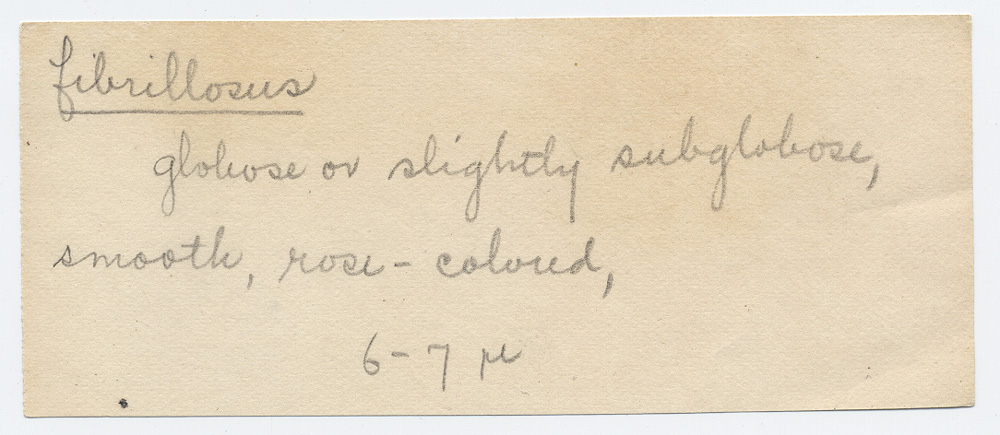 fibrillosus
globose or slightly subglobose,
smooth, rose-colored,
6-7 µ